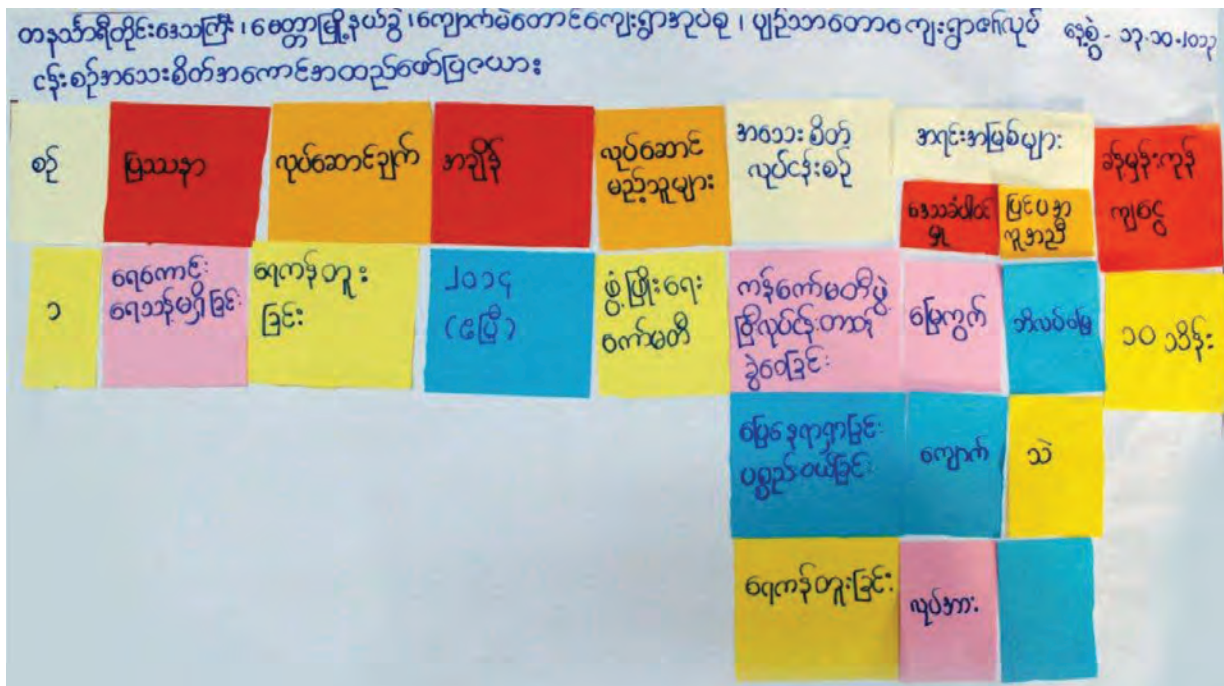 တနင်္သာရီတိုင်းဒေသကြီး ၊ မေတ္တာမြို့နယ်ခွဲ ၊ ကျောက်မဲတောင်ကျေးရွာအုပ်စု ၊ ပျဉ်သာတောကျေးရွာ၏လုပ် နေ့စွဲ - ၁၃.၁၀.၂၀၁၃
ငန်းစဉ်အသေးစိတ်အကောင်အထည်ဖော်ပြဇယား
စဉ်
ပြဿနာ
လုပ်ဆောင်ချက်
အချိန်
လုပ်ဆောင်
မည့်သူများ
အသေးစိတ်
လုပ်ငန်းစဉ်
အရင်းအမြစ်များ
ဒေသခံပါဝင်
မှု
ပြင်ပအာ
ကူအညီ
ခန့်မှန်းကုန်
ကျငွေ
၁
ရေကောင်း
ရေသန့်မရှိခြင်း
ရေကန်တူး
ခြင်း
၂၀၁၄
(ဧပြီ)
ဖွံ့ဖြိုးရေး
ကော်မတီ
ကန်ကော်မတီဖွဲ့
ပြီးလုပ်ငန်းတာဝန်
ခွဲဝေခြင်း
မြေကွက်
ဘိလပ်မြေ
၁၀ သိန်း
မြေနေရာရှာခြင်း
ပစ္စည်းဝယ်ခြင်း
ကျောက်
သဲ
ရေကန်တူးခြင်း
လုပ်အား